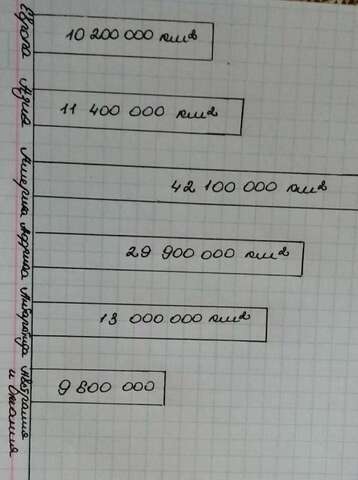 Европа
10 200 000 км²
Азия
11 400 000 км²
Америка
42 100 000 км²
Африка
29 900 000 км²
Антарктида
13 000 000 км²
Австралия
и Океания
9 800 000